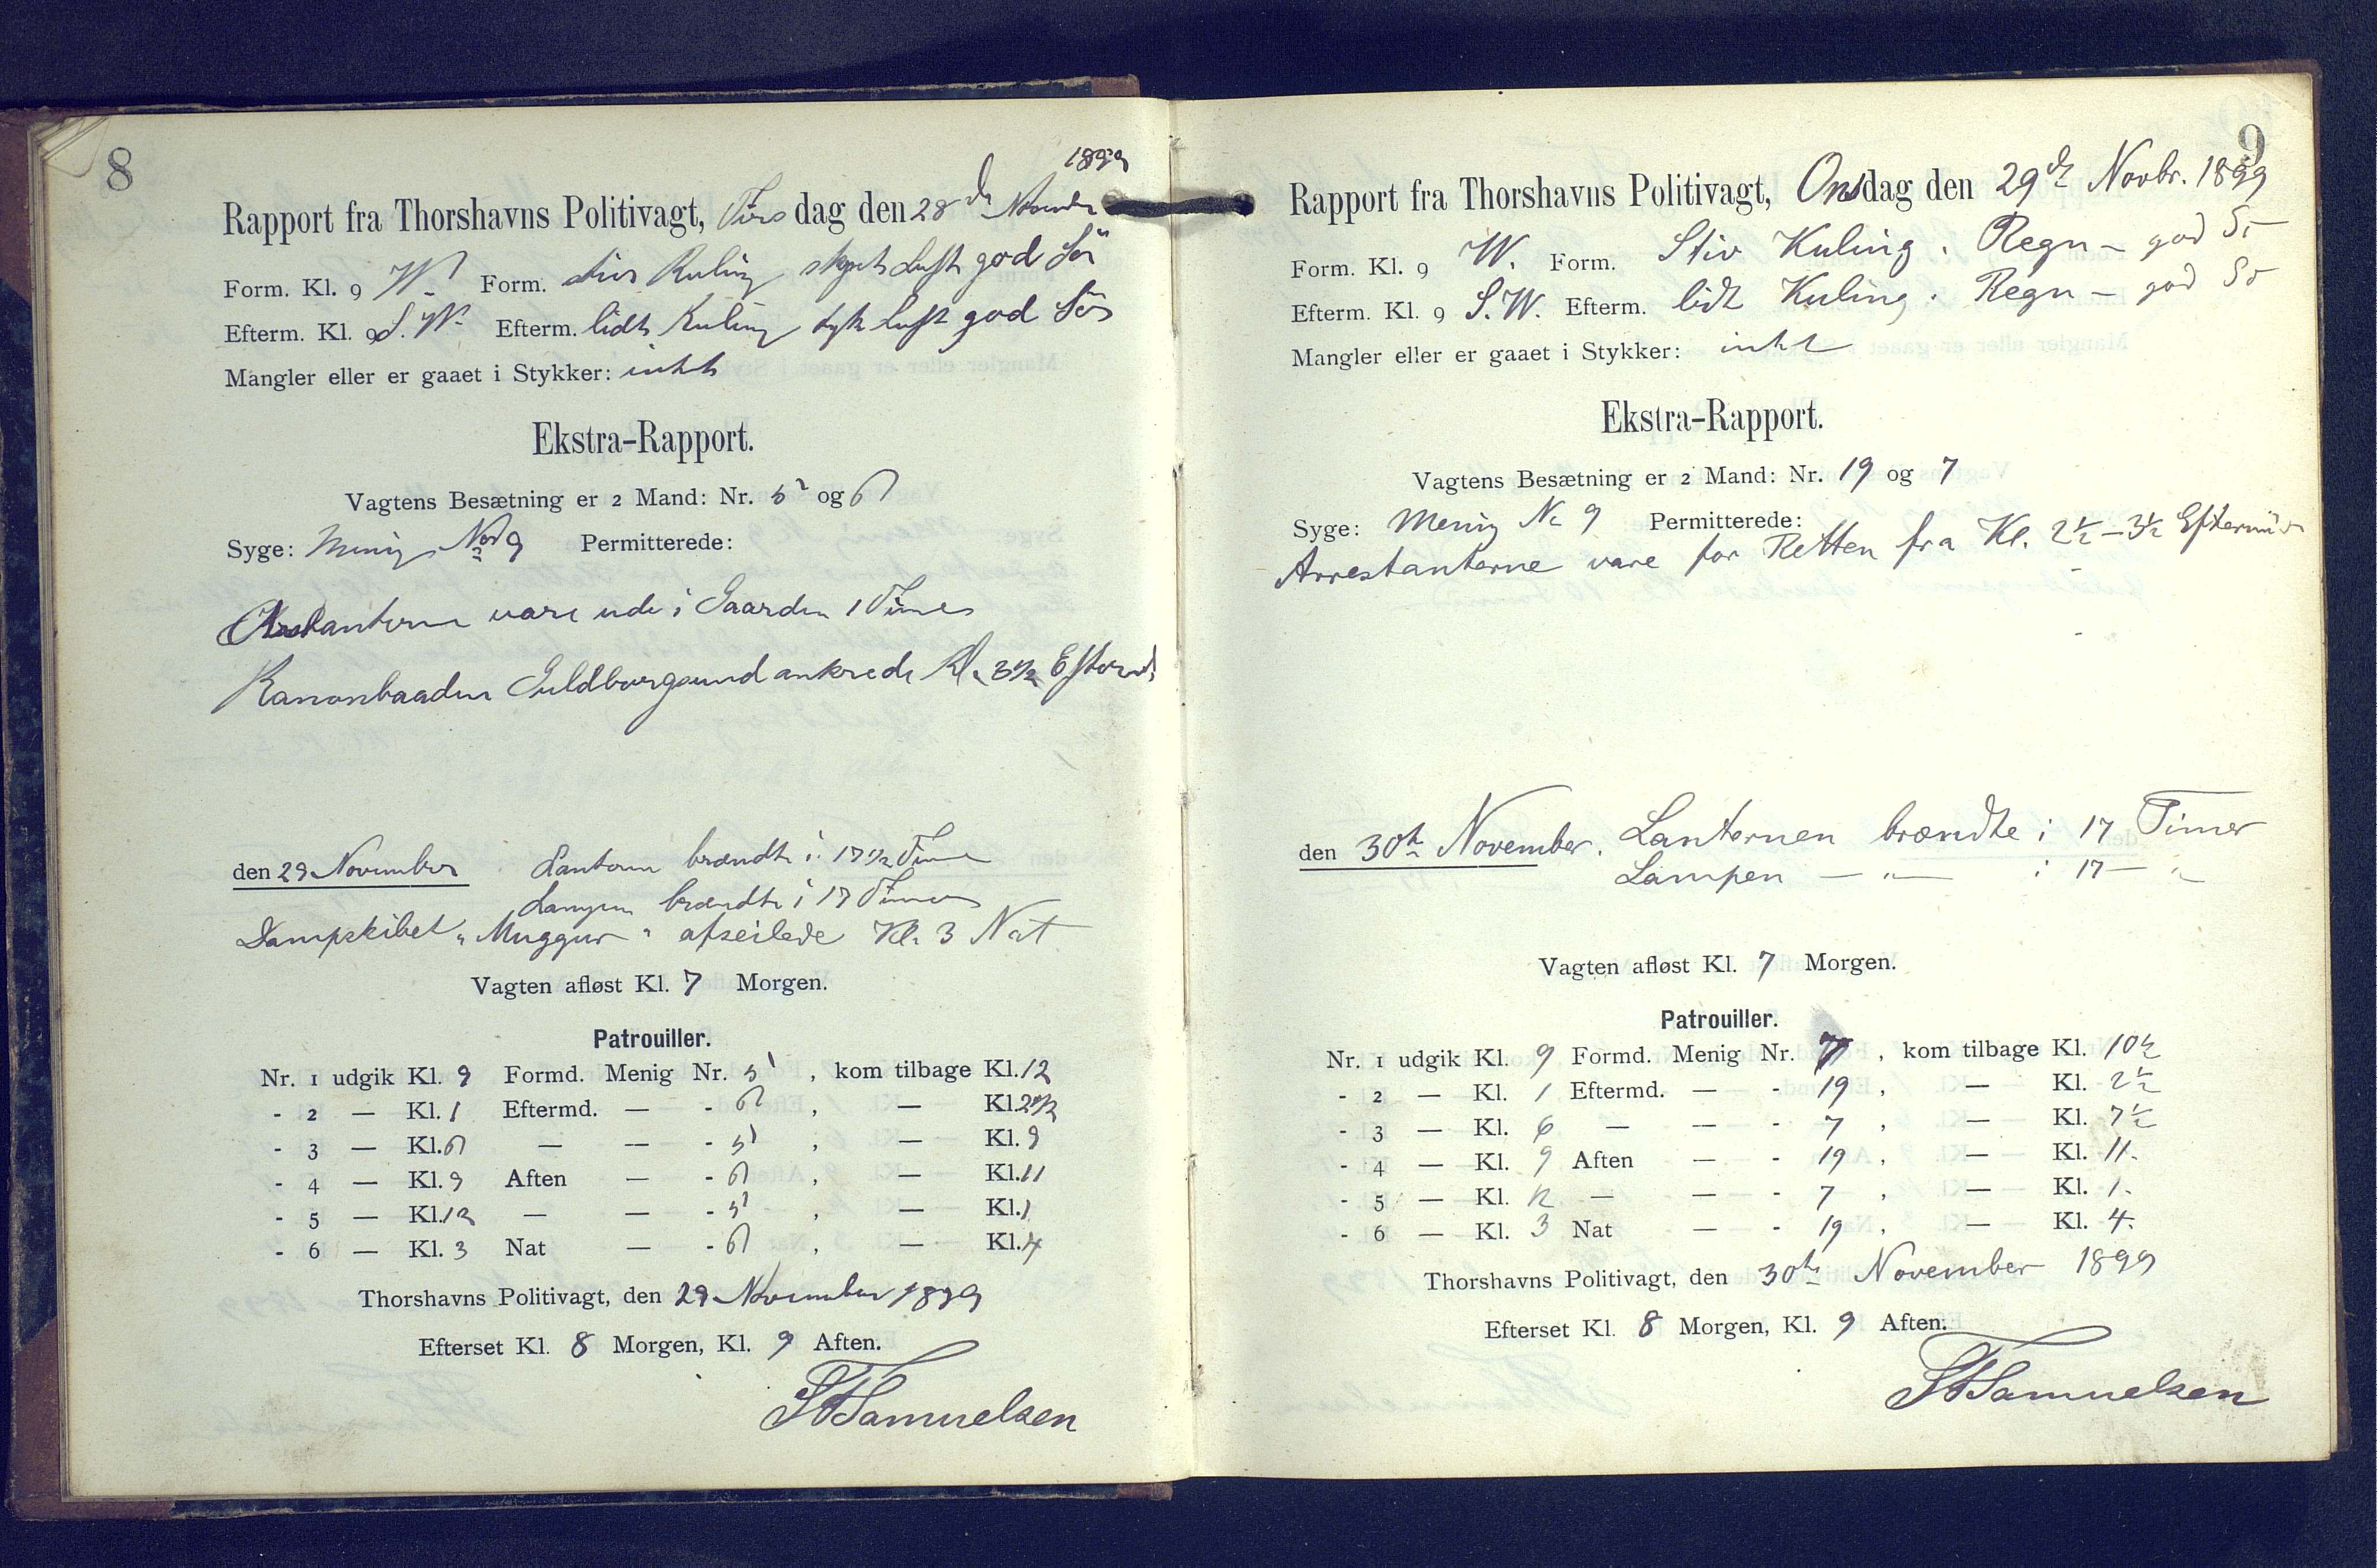 8
1899
Rapport fra Thorshavns Politivagt, Tirsdag den 28de November
Form. Kl. 9 W. Form. stiv Kuling skyet Luft god Sö
Efterm. Kl. 9 S.W. Efterm. lidt Kuling tyk Luft god Sö
Mangler eller er gaaet i Stykker: intet
Ekstra-Rapport.
Vagtens Besætning er 2 Mand: Nr. 5 og 6
Syge: Menig No 9 Permitterede:
Arestanterne vare ude i Gaarden 1 Time
Kanonbaaden Guldborgsund ankrede Kl. 3 1/2 Eftermd.
den 29 November Lantern brændte i 17 1/2 Time
Lampen brændte i 17 Timer
Dampskibet "Muggur" afseilede Kl. 3 Nat
Vagten afløst Kl. 7 Morgen.
Patrouiller.
Nr. 1 udgik Kl. 9 Formd. Menig Nr. 5, kom tilbage Kl. 12
- 2 — Kl. 1 Eftermd. — - 6, — Kl. 2 1/2
- 3 — Kl. 6 — — - 5, — Kl. 9
- 4 — Kl. 9 Aften — - 6, — Kl. 11
- 5 — Kl. 12 — — - 5, — Kl. 1
- 6 — Kl. 3 Nat — - 6, — Kl. 4
Thorshavns Politivagt, den 29 November 1899
Efterset Kl. 8 Morgen, Kl. 9 Aften.
Samuelsen
9
Rapport fra Thorshavns Politivagt, Onsdag den 29de Novbr. 1899
Form. Kl. 9 W. Form. Stiv Kuling. Regn – god Sö
Efterm. Kl. 9 S.W. Efterm. lidt Kuling. Regn – god Sö
Mangler eller er gaaet i Stykker: intet
Ekstra-Rapport.
Vagtens Besætning er 2 Mand: Nr. 19 og 7
Syge: Menig No 9 Permitterede:
Arrestanterne vare for Retten fra Kl. 2 1/2 – 3 1/2 Eftermid
den 30te November. Lanternen brændte i 17 Timer
Lampen — " — i 17 — "
Vagten afløst Kl. 7 Morgen.
Patrouiller.
Nr. 1 udgik Kl. 9 Formd. Menig Nr. 7, kom tilbage Kl. 10 1/2
- 2 — Kl. 1 Eftermd. — - 19, — Kl. 2 1/2
- 3 — Kl. 6 — — - 7, — Kl. 7 1/2
- 4 — Kl. 9 Aften — - 19, — Kl. 11.
- 5 — Kl. 12 — — - 7, — Kl. 1.
- 6 — Kl. 3 Nat — - 19, — Kl. 4.
Thorshavns Politivagt, den 30te November 1899
Efterset Kl. 8 Morgen, Kl. 9 Aften.
Samuelsen